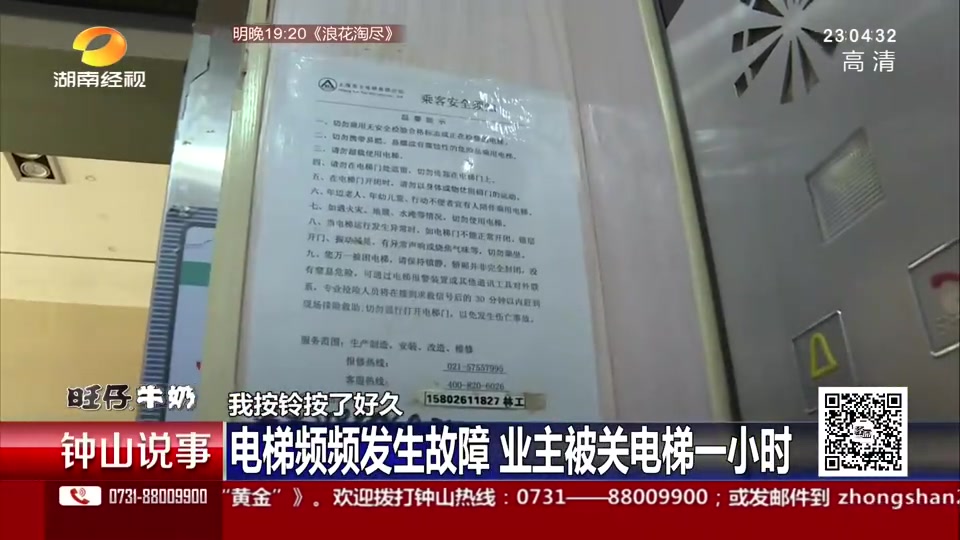 明晚19:20《浪花淘尽》
23:04:32
高清
湖南经视
乘客安全须知
温馨提示
一、切勿乘用无安全检验合格标志或正在检修的电梯。
二、切勿携带易燃、易爆或有腐蚀性的危险品乘用电梯。
三、请勿超载使用电梯。
四、请勿在电梯门处逗留，切勿倚靠在电梯门上。
五、在电梯门开闭时，请勿以身体或物体阻碍门的运动。
六、年迈老人、年幼儿童、行动不便者宜有人陪伴乘用电梯。
七、如遇火灾、地震、水淹等情况，切勿使用电梯。
八、当电梯运行发生异常时，如电梯门不能正常开闭，错层
开门、振动减速，有异常声响或烧焦气味等，切勿乘坐。
九、您万一被困电梯，请保持镇静，轿厢并非完全封闭，没
有窒息危险，可通过电梯报警装置或其他通讯工具对外联
系，专业抢险人员将在接到求救信号后的 30 分钟以内赶到
现场排除救助；切勿逞行打开电梯门，以免发生伤亡事故。
服务范围：生产制造、安装、改造、维修
报修热线： 021-57557995
客服热线： 400-820-6026
15802611827 林工
旺仔牛奶
我按铃按了好久
钟山说事
电梯频频发生故障 业主被关电梯一小时
0731-88009900
“黄金”》。欢迎拨打钟山热线：0731——88009900；或发邮件到 zhongshan